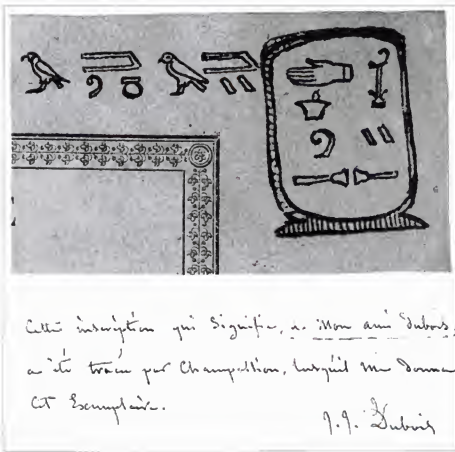 Cette inscription qui Signifie, à Mon ami Dubois,
a été tracée par Champollion, lorsqu'il me donna
cet Exemplaire.
J. J. Dubois